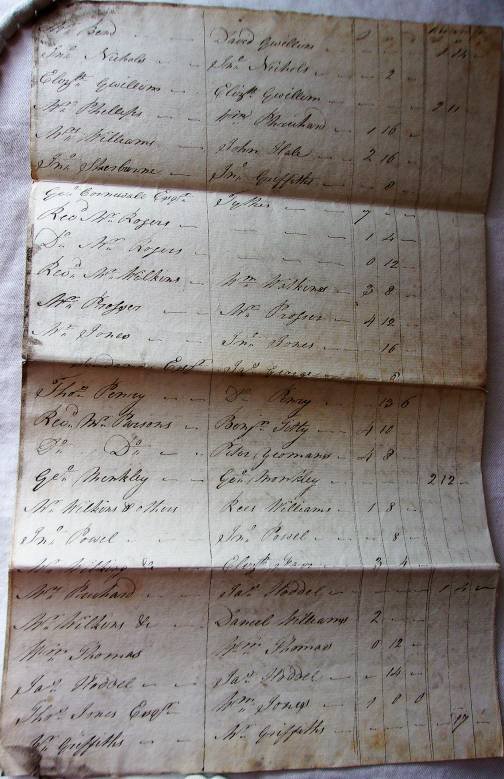 Bend — David Gwillum — 1 14
Jnº Nichols — Jnº Nichols — 2
Elizth Gwillum — Elizth Gwillum — 2 11
Mrs Phillips — Wm Pruchard — 1 16
Mrs Williams — John Hale — 2 16
Jnº Sherburne — Jnº Griffiths — 8
Geoº Cornewall Esqr — Sykes — 7
Revd Mr Rogers — 1 4
Dº Mr Rogers — 0 12
Revd Mr Wilkins — Wm Watkins — 3 8
Mrs Prosser — Mrs Prosser — 4 12
Mr Jones — Jnº Jones — 16
Esqr — Jasº George — 8
Thoº Penry — Dº Penry — 13 6
Revd Mr Parsons — Benjn — 4 10
Dº Dº — Peter Yeomans — 4 8
Geoº Monkley — Geoº Monkley — 2 12
Mr Wilkins & others — Rees Williams — 1 8
Jnº Powel — Jnº Powel — 8
&c — Elizth — 3 4
Mrs Pruchard — Jasº Hoddel — 1 4
Mr Wilkins &c — Daniel Williams — 2
Wm Thomas — Wm Thomas — 0 12
Jasº Hoddel — Jasº Hoddel — 14
Thoº Jones Esqr — Wm Jones — 1 0 0
Mr Griffiths — Mr Griffiths — 17